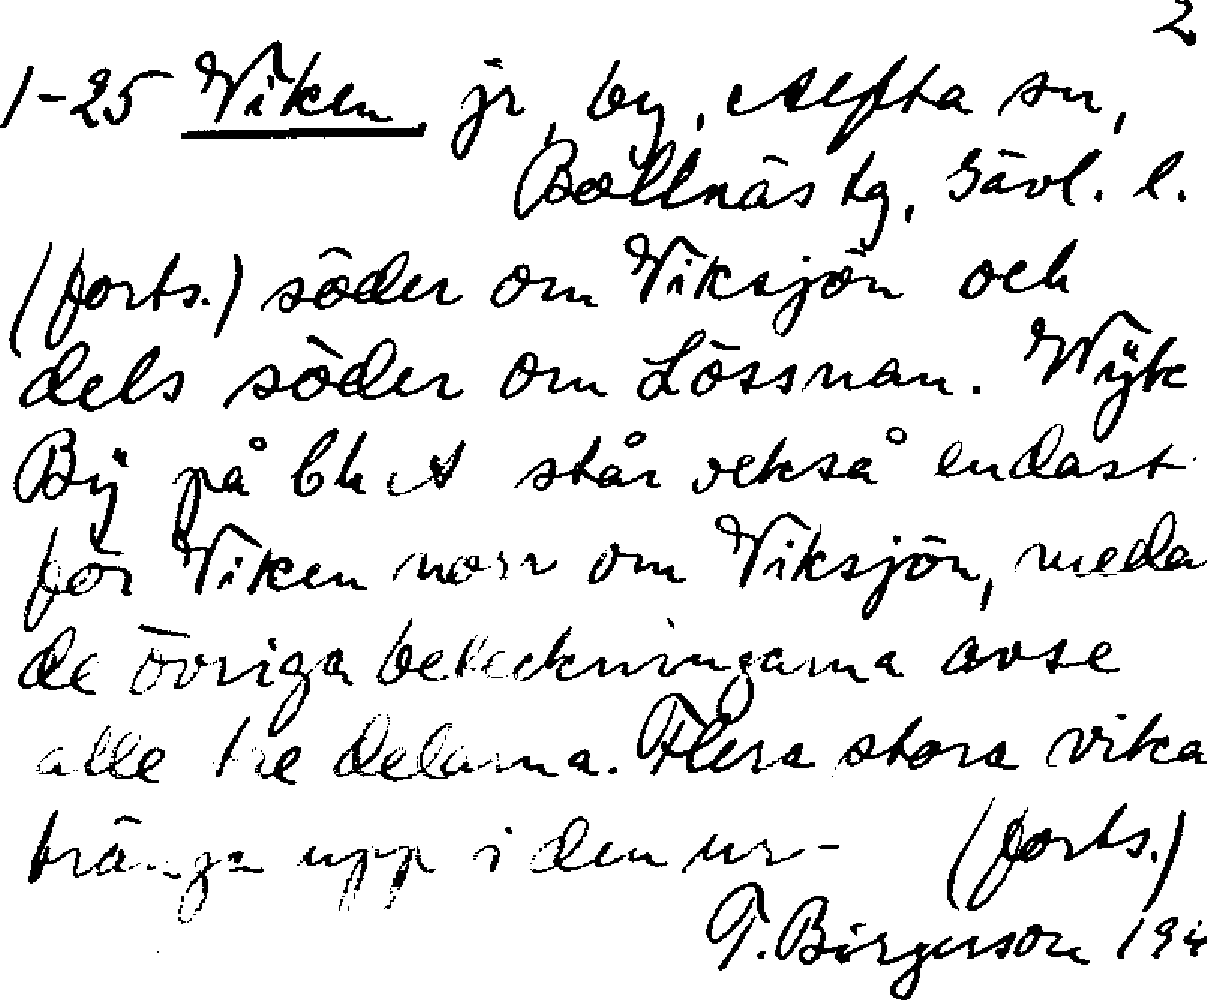 2
1-25 Viken, jr, by, Alfta sn,
Bollnäs tg, Gävl. l.
(forts.) söder om Viksjön och
dels söder om Lössnan. Wÿk
Bÿ på bl A står också endast
för Viken norr om Viksjön, meda
de övriga beteckningarna avse
alla tre delarna. Flera stora vika
tränga upp i den ur-
(forts.)
T. Birgerson 194